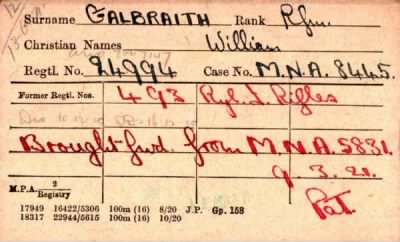 12
Surname GALBRAITH Rank Rfm.
Christian Names William
Regtl. No. 24994 Case No. M.N.A. 8445.
Former Regtl. Nos. 493 Ryl. I. Rifles
Brought fwd. from M.N.A. 5831.
9.3.21.
M.P.A. 2
Registry
Pat.
17949 16422/5306 100m (16) 8/20 J.P. Gp. 158
18317 22944/5615 100m (16) 10/20